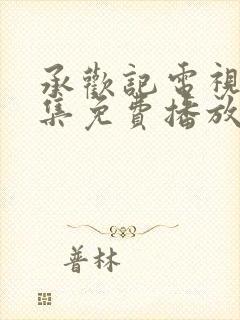 承歡記電視
集免費播放
普林